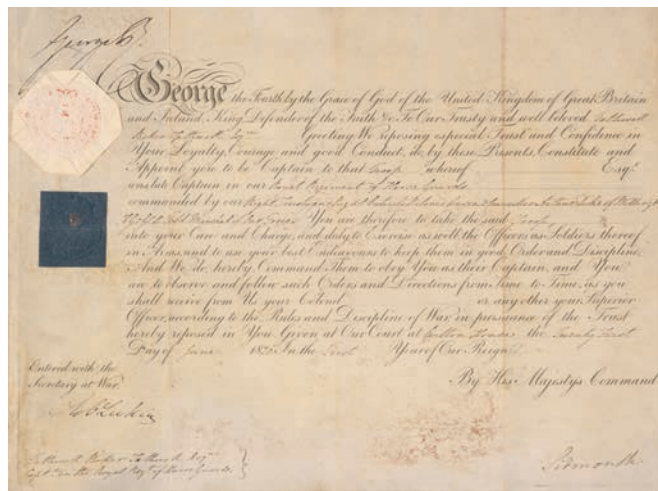 George R.
George the Fourth by the Grace of God of the United Kingdom of Great Britain
and Ireland, King, Defender of the Faith & To Our Trusty and well beloved
Esqr Greeting We reposing especial Trust and Confidence in
Your Loyalty, Courage and good Conduct, do, by these Presents, Constitute and
Appoint you to be Captain to that Troop whereof Esqr
was late Captain in our Royal Regiment of Horse Guards
commanded by our Right Trusty
You are therefore to take the said Troop
into your Care and Charge, and duly to Exercise as well the Officers as Soldiers thereof
in Arms, and to use your best Endeavours to keep them in good Order and Discipline,
And We do, hereby, Command Them to obey You as their Captain, and You
are to observe and follow such Orders and Directions from Time to Time, as you
shall receive from Us your Colonel or any other your Superior
Officer, according to the Rules and Discipline of War in pursuance of the Trust
hereby reposed in You. Given at Our Court at Carlton House the Twenty First
Day of June 182 In the First Year of Our Reign
Entered with the
Secretary at War.
By His Majestys Command
Esqr
Captn in the Royal Regt of Horse Guards
Sidmouth